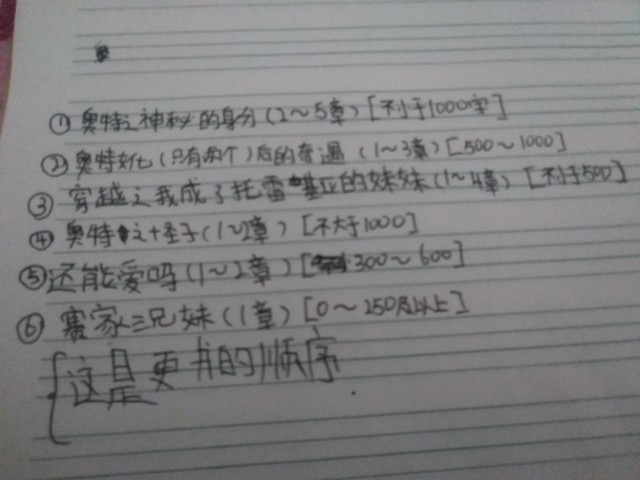 奥
①奥特之神秘的身份(2～5章)[不小于1000字]
②奥特女化(只有两个)后的奇遇(1～3章)[500～1000]
③穿越之我成了托雷基亚的妹妹(1～4章)[不小于500]
④奥特之十圣子(1～2章)[不大于1000]
⑤还能爱吗(1～2章)[300～600]
⑥赛家三兄妹(1章)[0～250及以上]
{这是更书的顺序